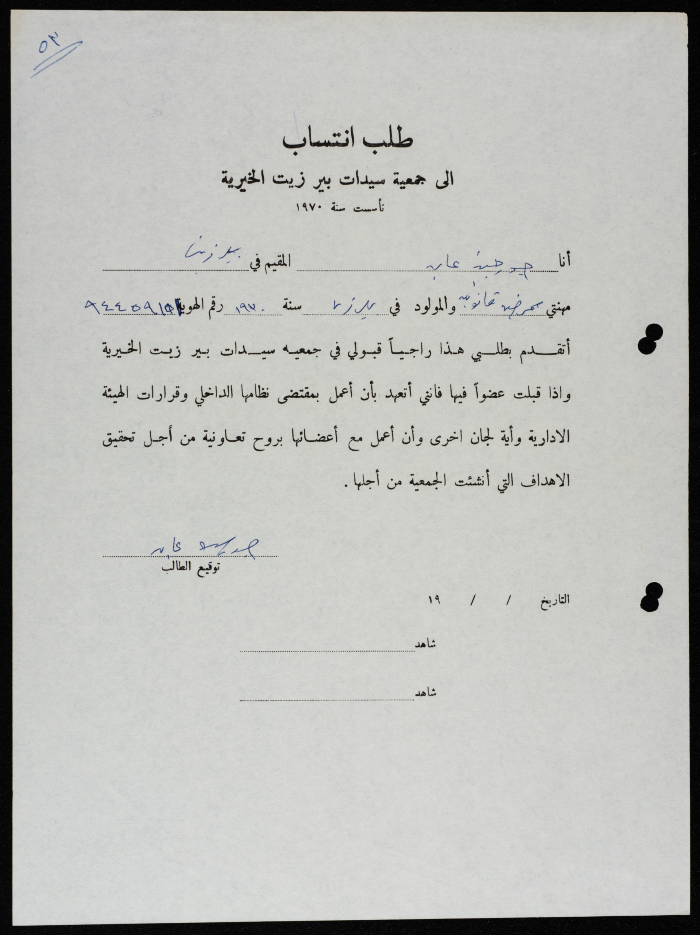 ٥٣
طلب انتساب
الى جمعية سيدات بير زيت الخيرية
تأسست سنة ١٩٧٠
أنا المقيم في بيرزيت
مهنتي والمولود في سنة رقم الهوية
أتقدم بطلبي هذا راجياً قبولي في جمعيه سيدات بير زيت الخيرية
واذا قبلت عضواً فيها فانني أتعهد بأن أعمل بمقتضى نظامها الداخلي وقرارات الهيئة
الادارية وأية لجان اخرى وأن أعمل مع أعضائها بروح تعاونية من أجل تحقيق
الاهداف التي أنشئت الجمعية من أجلها .
توقيع الطالب
التاريخ / / ١٩
شاهد
شاهد